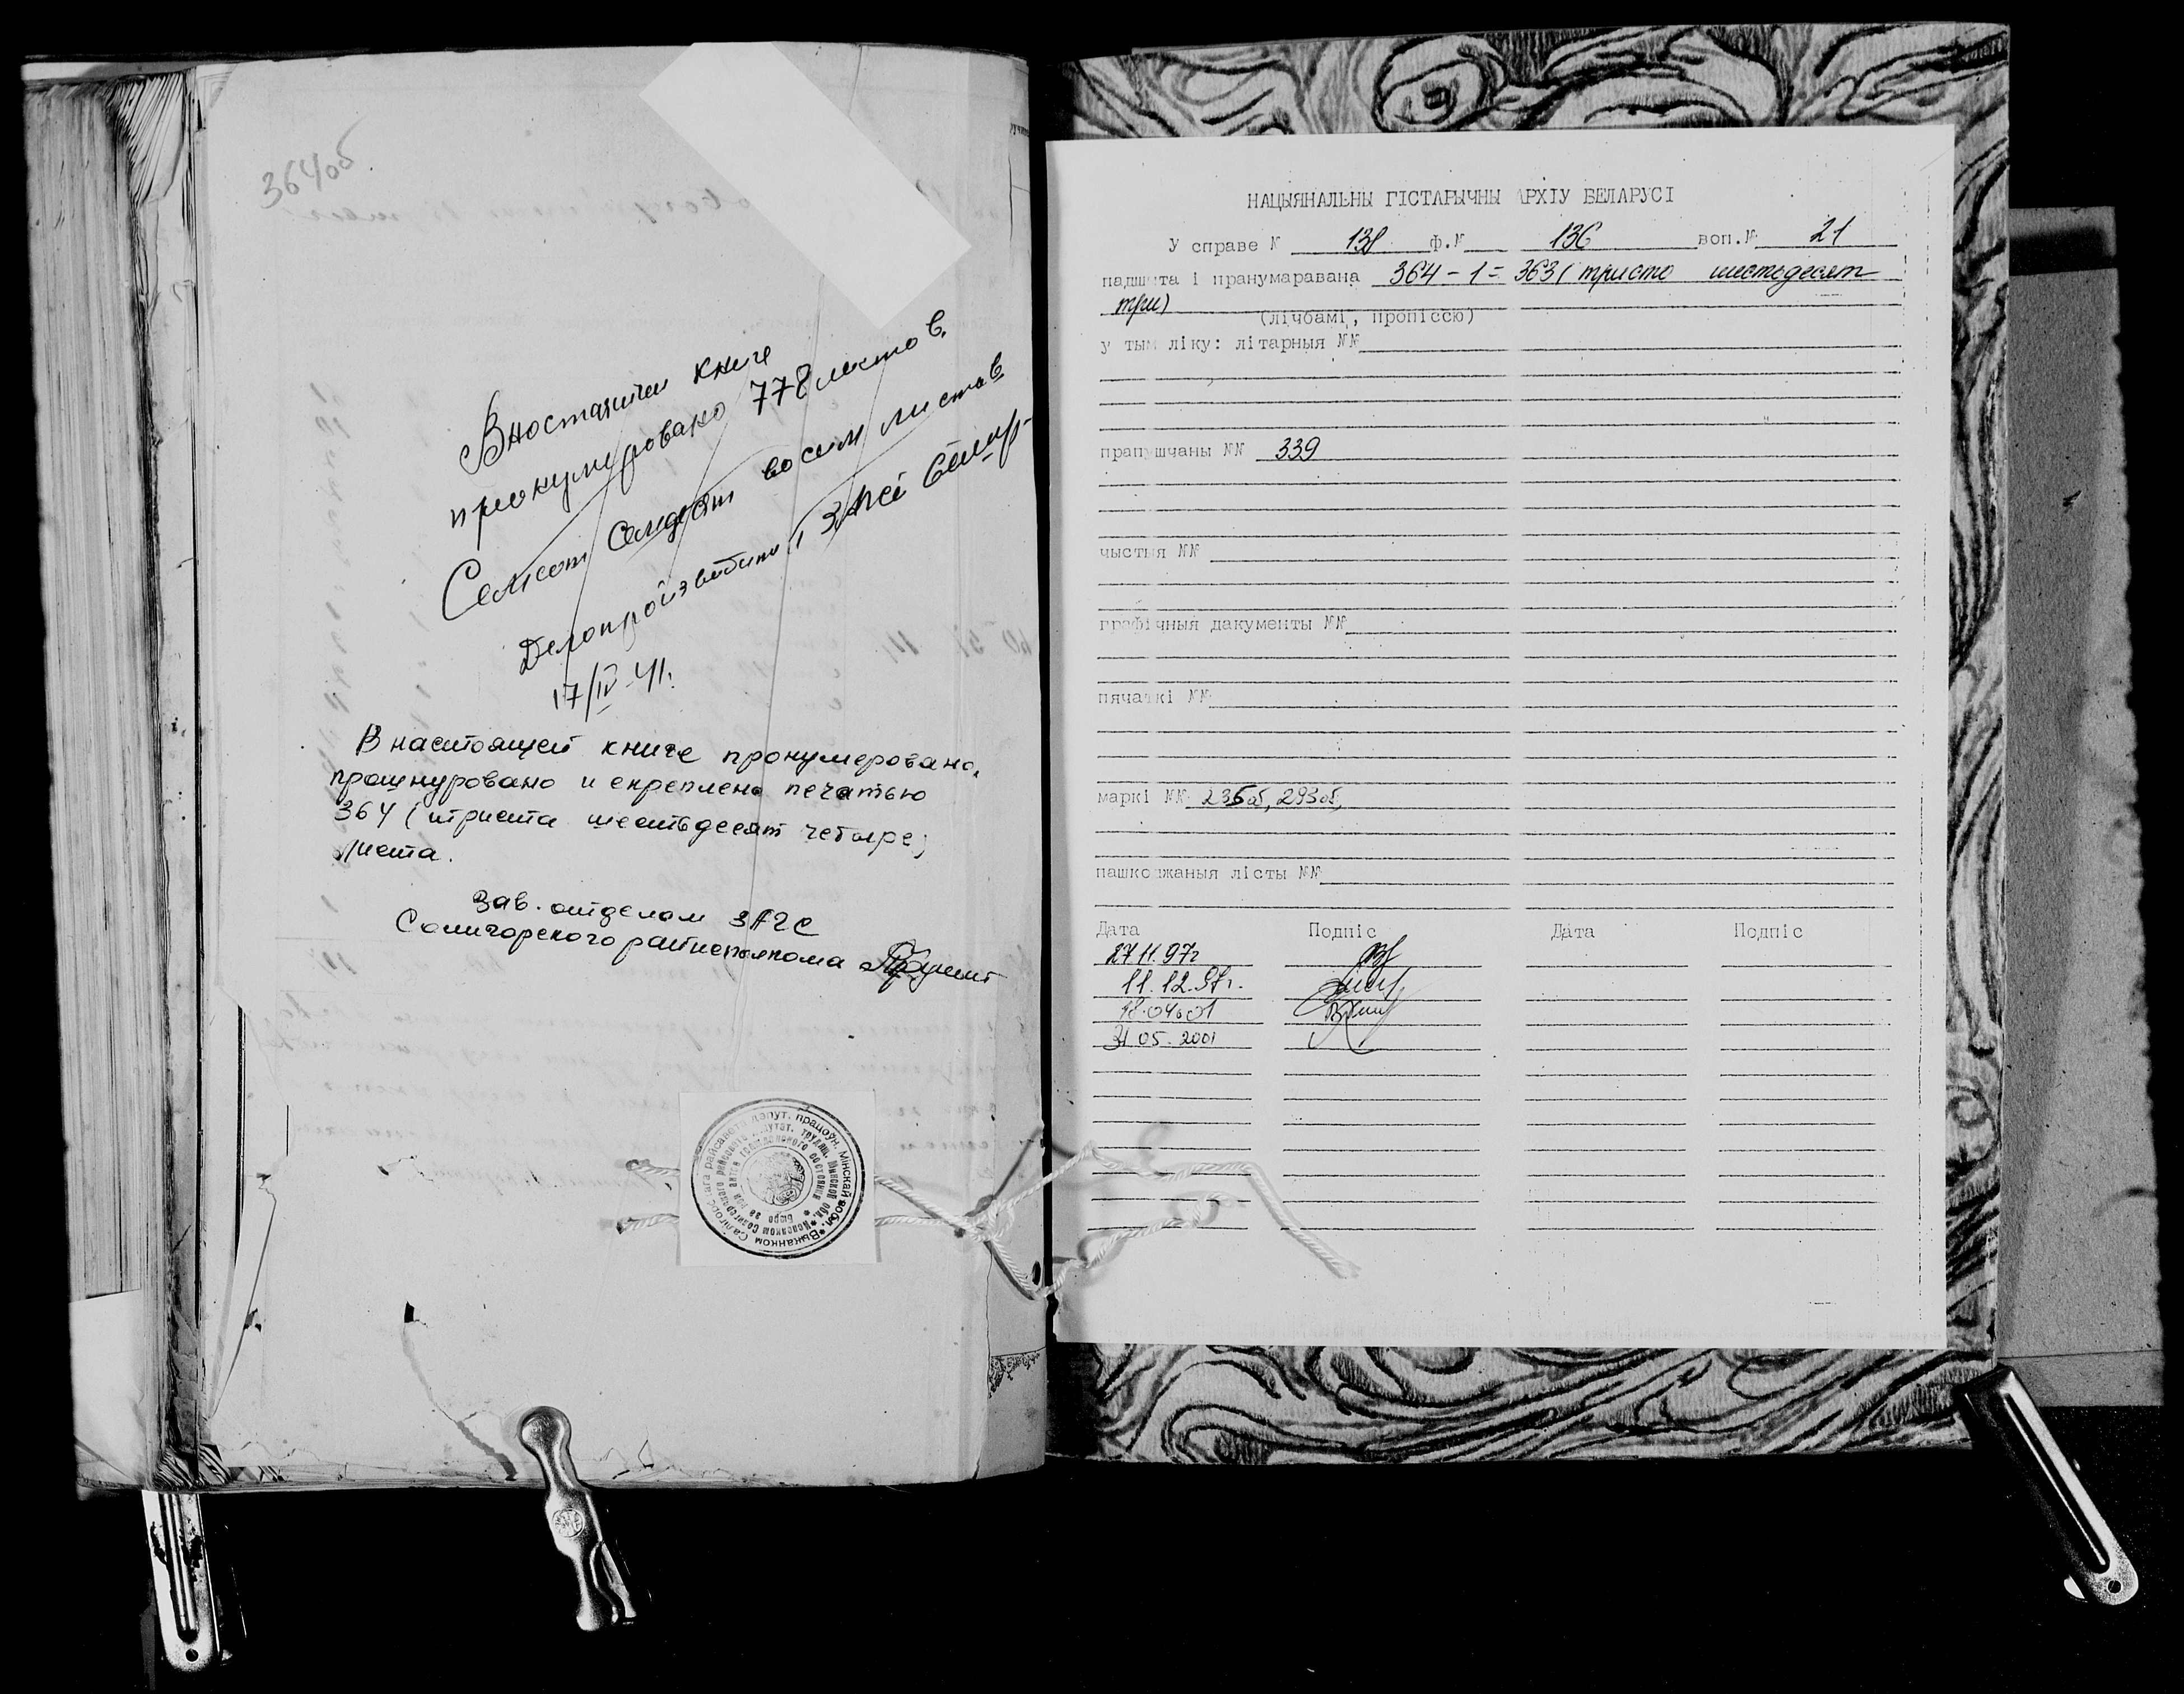 364об
Вностаящей книге
пронумеровано 778 листов.
Семсот семдесят восем листов
Делопроізводитель ЗАГС
17/IV-41.
В настоящей книге пронумеровано,
прошнуровано и скреплено печатью
364 (триста шестьдесят четыре)
листа.
Зав. отделом ЗАГС
Солигорского райисполкома
НАЦЫЯНАЛЬНЫ ГІСТАРЫЧНЫ АРХІУ БЕЛАРУСІ
У справе № 138 ф.№ 136 воп.№ 21
падшыта і пранумаравана 364 - 1 = 363 (тристо шестьдесят
три)
(лічбамі, пропіссю)
у тым ліку: літарныя №№
прапушчаны №№ 339
чыстыя №№
графічныя дакументы №№
пячаткі №№
маркі №№ 235об, 293об,
пашкоджаныя лісты №№
Дата Подпіс Дата Подпіс
27.11.97г
11.12.97г.
18.04.01
31 05. 2001
Выканком Салігорскага райсавета дэпут. працоўн. Мінскай вобл.
Исполком Солигорского райсовета депутат. трудящ. Минской обл.
Бюро записи актов гражданского состояния